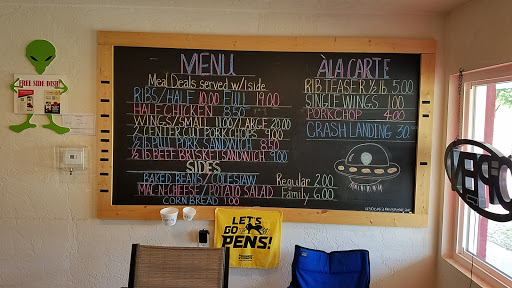 MENU
Meal Deals served w/1side
RIBS/HALF 10.00 FULL 19.00
HALF CHICKEN 8.50
WINGS/SMALL 10.00 LARGE 20.00
2 CENTER CUT PORKCHOPS 9.00
½ lb PULL PORK SANDWICH 8.50
½ lb BEEF BRISKET SANDWICH 9.00
SIDES
BAKED BEANS / COLESLAW Regular 2.00
MAC N CHEESE / POTATO SALAD Family 6.00
CORN BREAD 1.00
À LA CARTE
RIB TEASER ½ lb 5.00
SINGLE WINGS 1.00
PORK CHOP 4.00
CRASH LANDING
FREE SIDE DISH
LET'S
GO
PENS!
OPEN